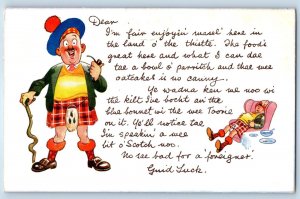 Dear
I'm fair enjoyin' masel' here in
the land o' the thistle. Tha food's
great here and what I can dae
tae a bowl o' parritch and that wee
oatcakes is no canny.
Ye wadna ken me noo wi'
the kilt I've bocht an' the
blue bonnet wi' the wee Toorie
on it. Ye'll notice tae
I'm speakin' a wee
bit o' Scotch noo.
No sae bad for a 'foreigner'.
Guid Luck.